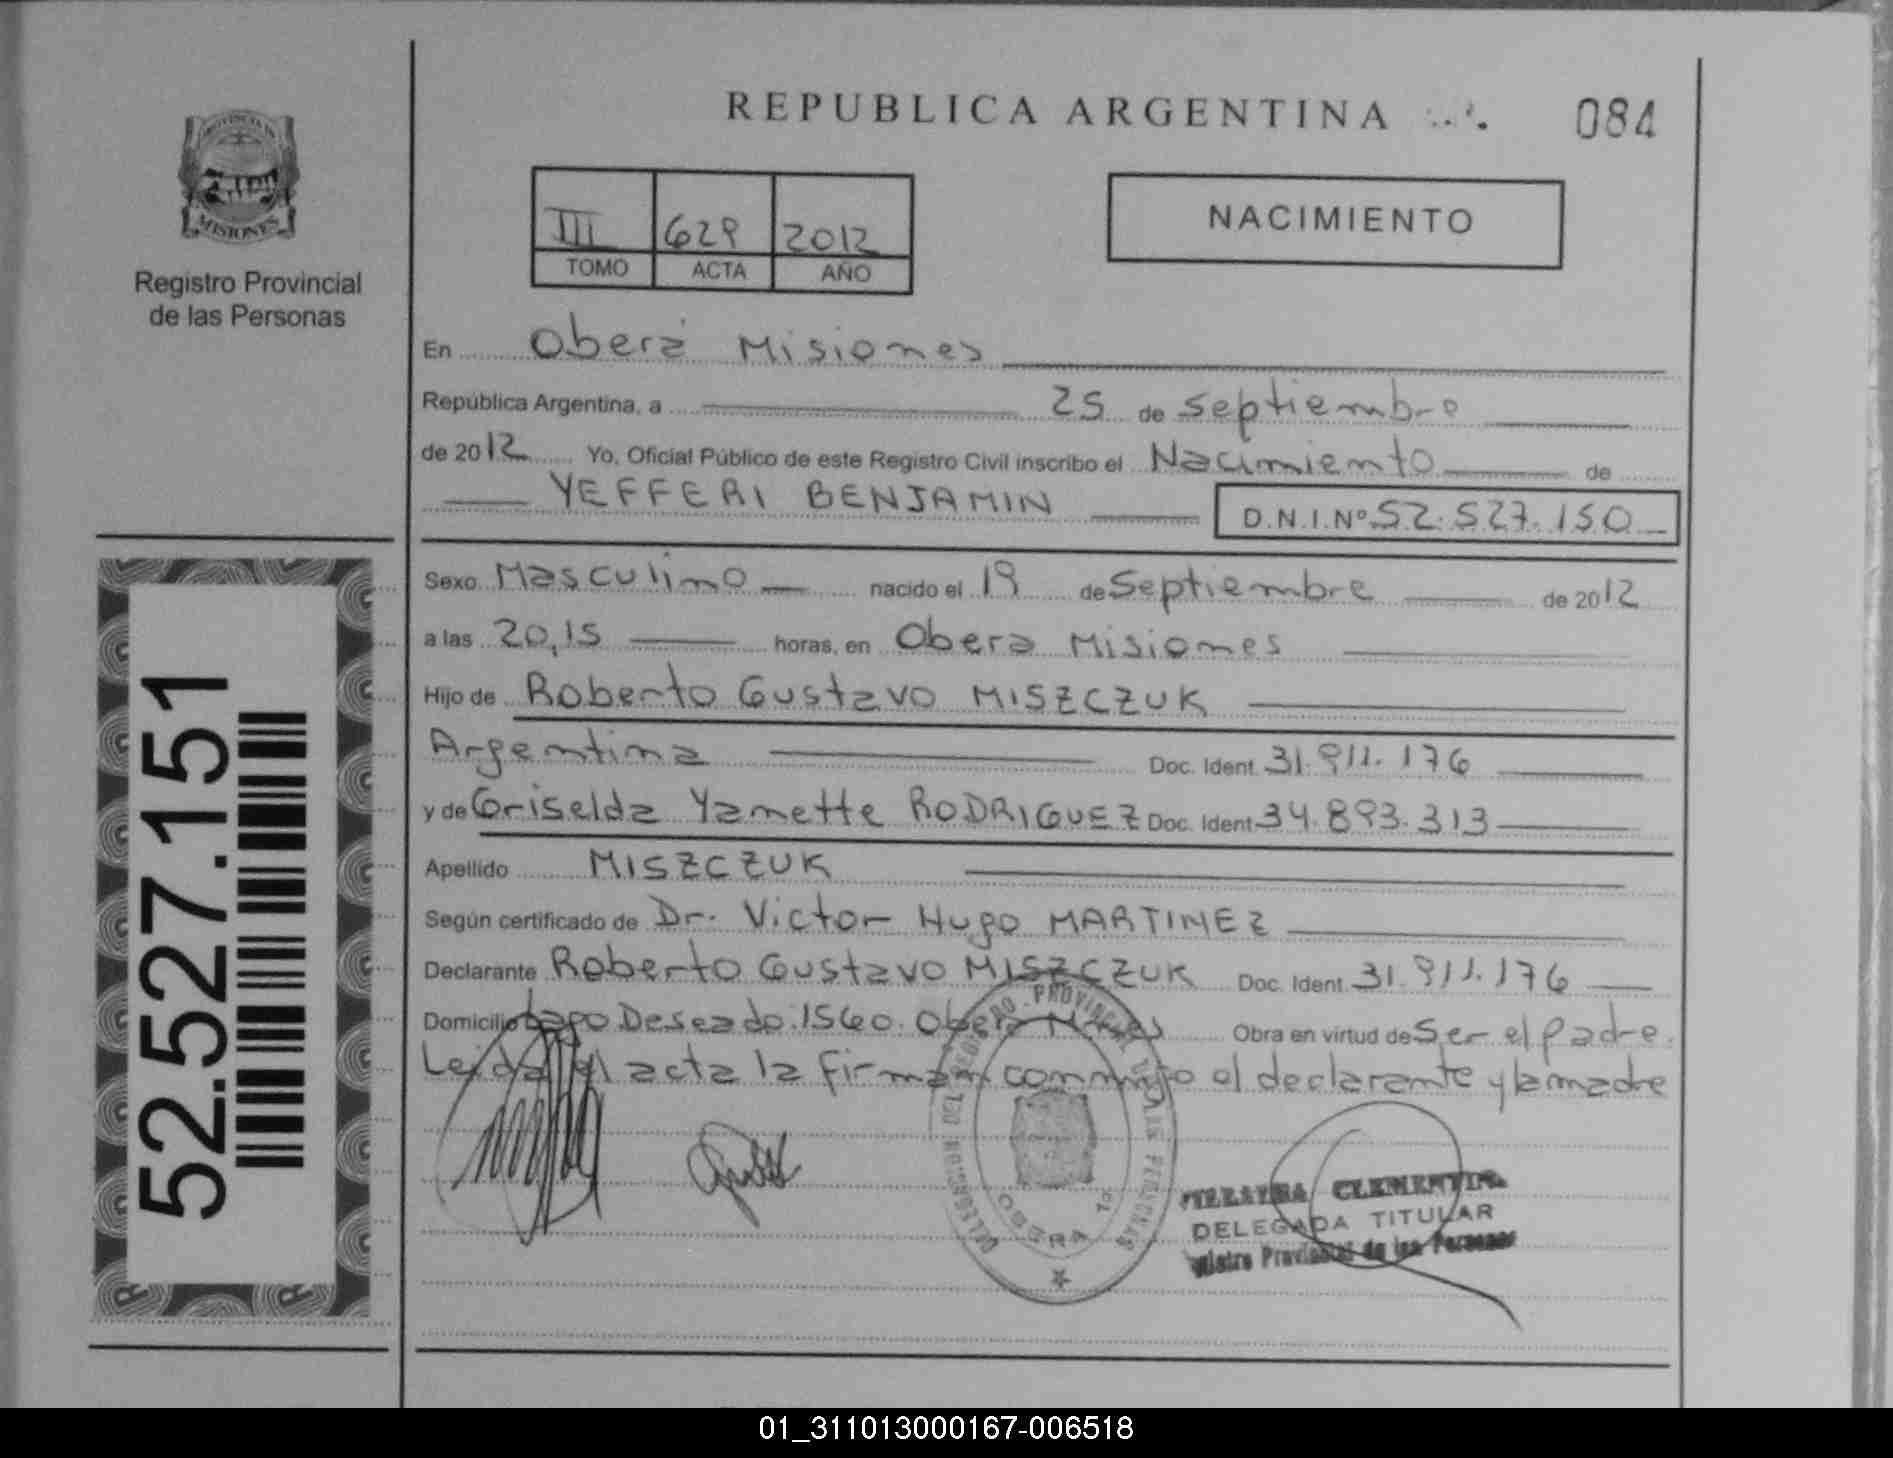 REPUBLICA ARGENTINA
084
PROVINCIA DE
MISIONES
Registro Provincial
de las Personas
III 629 2012
TOMO ACTA AÑO
NACIMIENTO
En Oberá Misiones
República Argentina, a 25 de Septiembre
de 2012 Yo, Oficial Público de este Registro Civil inscribo el Nacimiento de
YEFFERI BENJAMIN D.N.I.Nº 52.527.150
Sexo Masculino nacido el 19 de Septiembre de 2012
a las 20,15 horas, en Obera Misiones
Hijo de Roberto Gustavo MISZCZUK
Argentina Doc. Ident. 31.911.176
y de Griselda Yanette RODRIGUEZ Doc. Ident. 34.893.313
Apellido MISZCZUK
Según certificado de Dr. Victor Hugo MARTINEZ
Declarante Roberto Gustavo MISZCZUK Doc. Ident. 31.911.176
Domicilio Lago Deseado 1560. Obera Mnes Obra en virtud de Ser el padre.
Leida el acta la firman conmigo el declarante y la madre
52.527.151
OBERA
CLEMENTINA
DELEGADA TITULAR
Provincial de las Personas
01_311013000167-006518